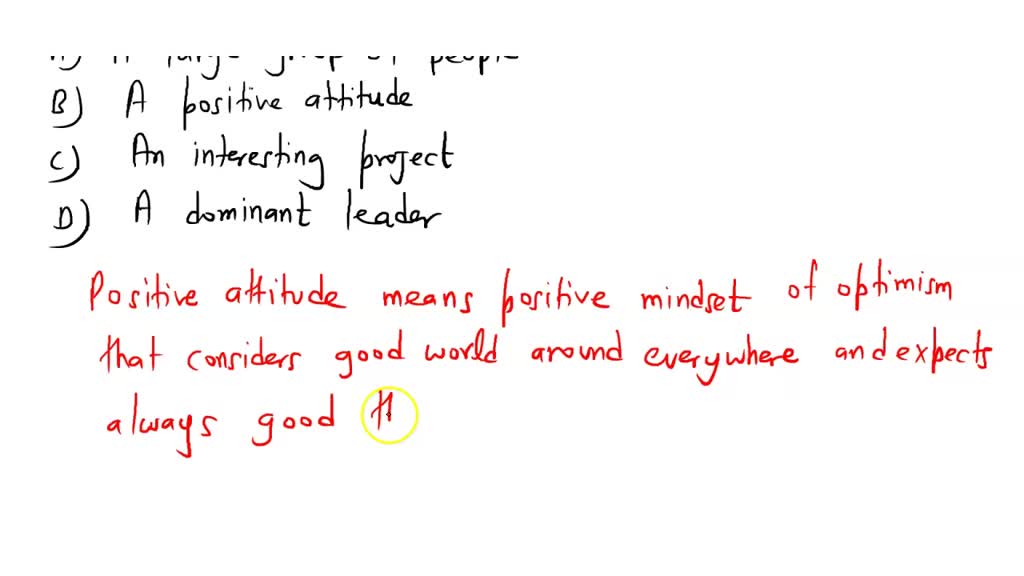 A) A large group of people
B) A positive attitude
C) An interesting project
D) A dominant leader
Positive attitude means positive mindset of optimism
that considers good world around everywhere and expects
always good